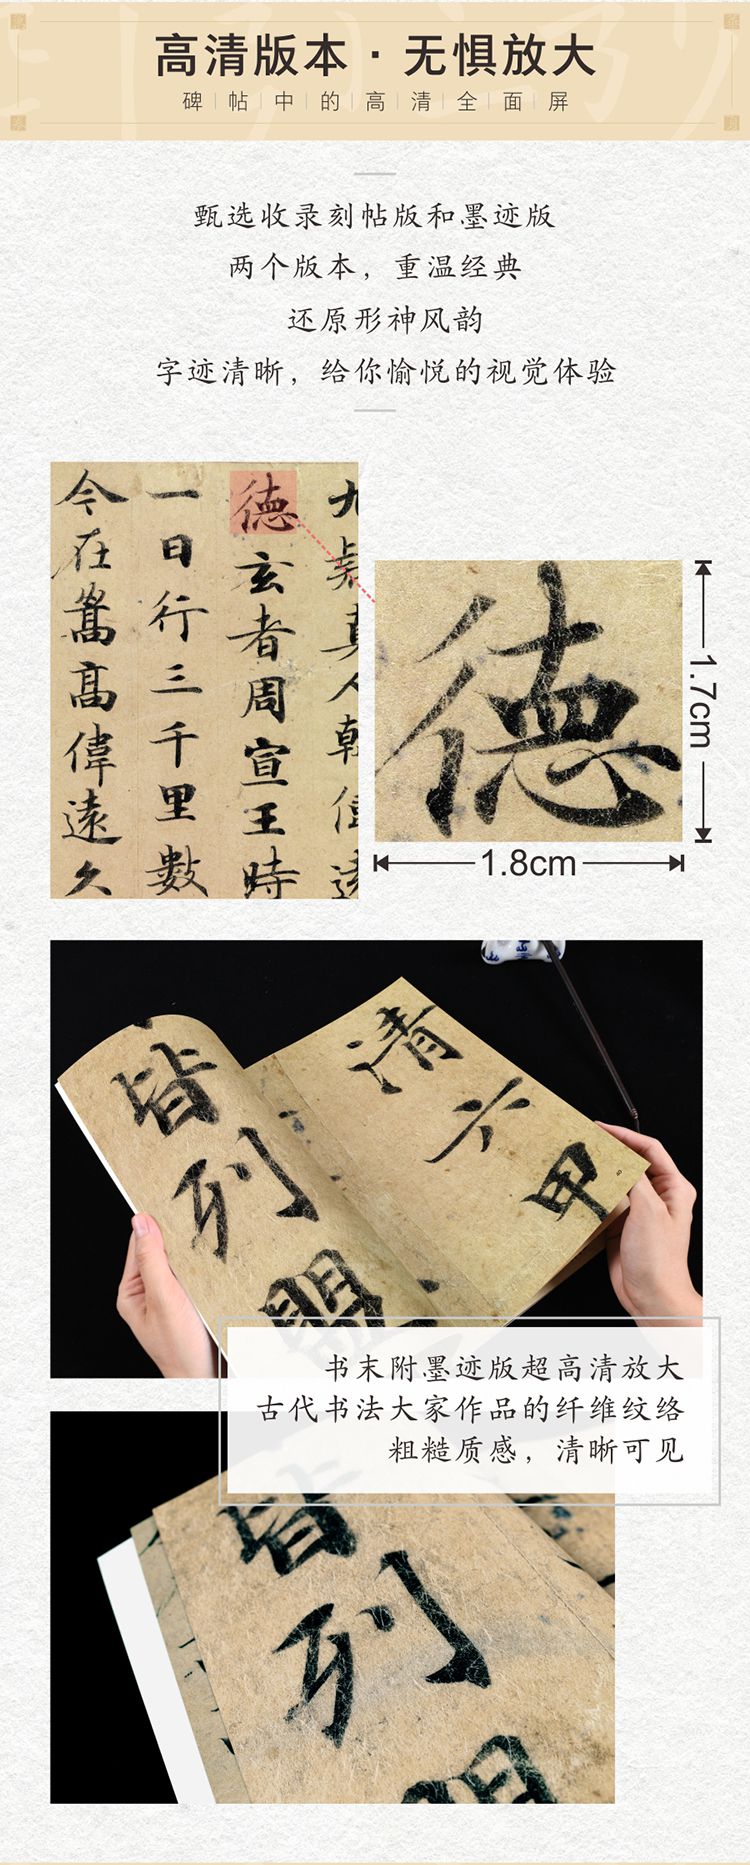 高清版本·无惧放大
碑帖中的高清全面屏
甄选收录刻帖版和墨迹版
两个版本，重温经典
还原形神风韵
字迹清晰，给你愉悦的视觉体验
德玄者周宣王時
一日行三千里數
今在嵩高偉遠久
德
1.7cm
1.8cm
清六甲
皆列
书末附墨迹版超高清放大
古代书法大家作品的纤维纹络
粗糙质感，清晰可见
皆列